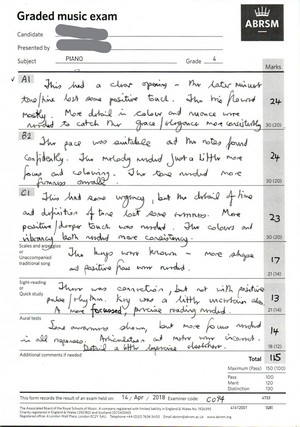 Graded music exam
ABRSM
Candidate
Presented by
Subject PIANO Grade 4
Marks
A1 This had a clear opening - the later minuet
tone/line lost some positive touch. The trio flowed
mostly. More detail in colour and nuance were
needed to catch the grace/elegance more consistently
24
30 (20)
B2 The pace was suitable and the notes found
confidently. The melody needed just a little more
focus and colouring. The tone needed more
firmness overall.
24
30 (20)
C1 This had some urgency, but the detail of line
and definition of tone lost some evenness. More
positive/deeper touch was needed. The colours and
vibrancy both needed more consistency.
23
30 (20)
Scales and arpeggios
or
Unaccompanied
traditional song
The keys were known - more shape
and positive flow were needed.
17
21 (14)
Sight-reading
or
Quick study
There was connection, but not with positive
pulse/rhythm. Key was a little uncertain also
A more focussed, precise reading needed
13
21 (14)
Aural tests
Some awareness shown, but more focus needed
in all responses. Articulation and metre were incorrect.
Detail a little imprecise elsewhere.
14
18 (12)
Additional comments if needed
Total 115
Maximum (Pass) 150 (100)
Pass 100
Merit 120
Distinction 130
This form records the result of an exam held on 14 / Apr / 2018 Examiner code: CO74
The Associated Board of the Royal Schools of Music
www.abrsm.org